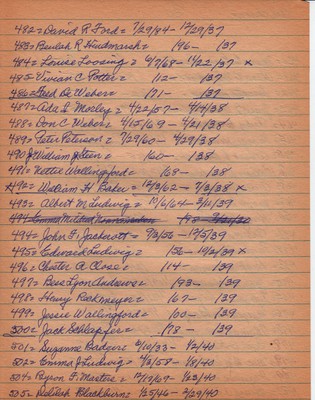 482 = David R. Ford = 7/29/84 - 12/29/37
483 = Beulah R. Hindmarsh = 196 - 137
484 = Louise Loosing = 9/7/68 - 11/22/37 x
485 = Vivian C. Potter = 112 - 137
486 = Fred De Weber = 171 - 137
487 = Ada S. Mosley = 4/22/57 - 4/14/38
488 = Don C. Weber = 4/15/69 - 4/21/38
489 = Peter Peterson = 7/29/60 - 4/29/38
490 = William H. Steen = 160 - 138
491 = Nettie Wallingford = 168 - 138
492 = William H. Baker = 12/3/62 - 7/3/38 x
493 = Albert M. Ludwig = 10/6/64 - 3/11/39
494 = John F. Jackerott = 9/3/56 - 12/5/39
495 = Edward Ludwig = 156 - 10/2/39 x
496 = Chester A. Close = 114 - 139
497 = Bess Lyon Andrews = 193 - 139
498 = Henry Rockmeyer = 167 - 139
499 = Jessie Wallingford = 100 - 139
500 = Jack Schlapfer = 178 - 139
501 = Suzanne Badger = 6/10/33 - 1/2/40
502 = Emma J. Ludwig = 4/2/58 - 1/8/40
504 = Byron F. Mattee = 12/19/67 - 1/23/40
505 = Delilah Blackburn = 1/25/46 - 2/29/40